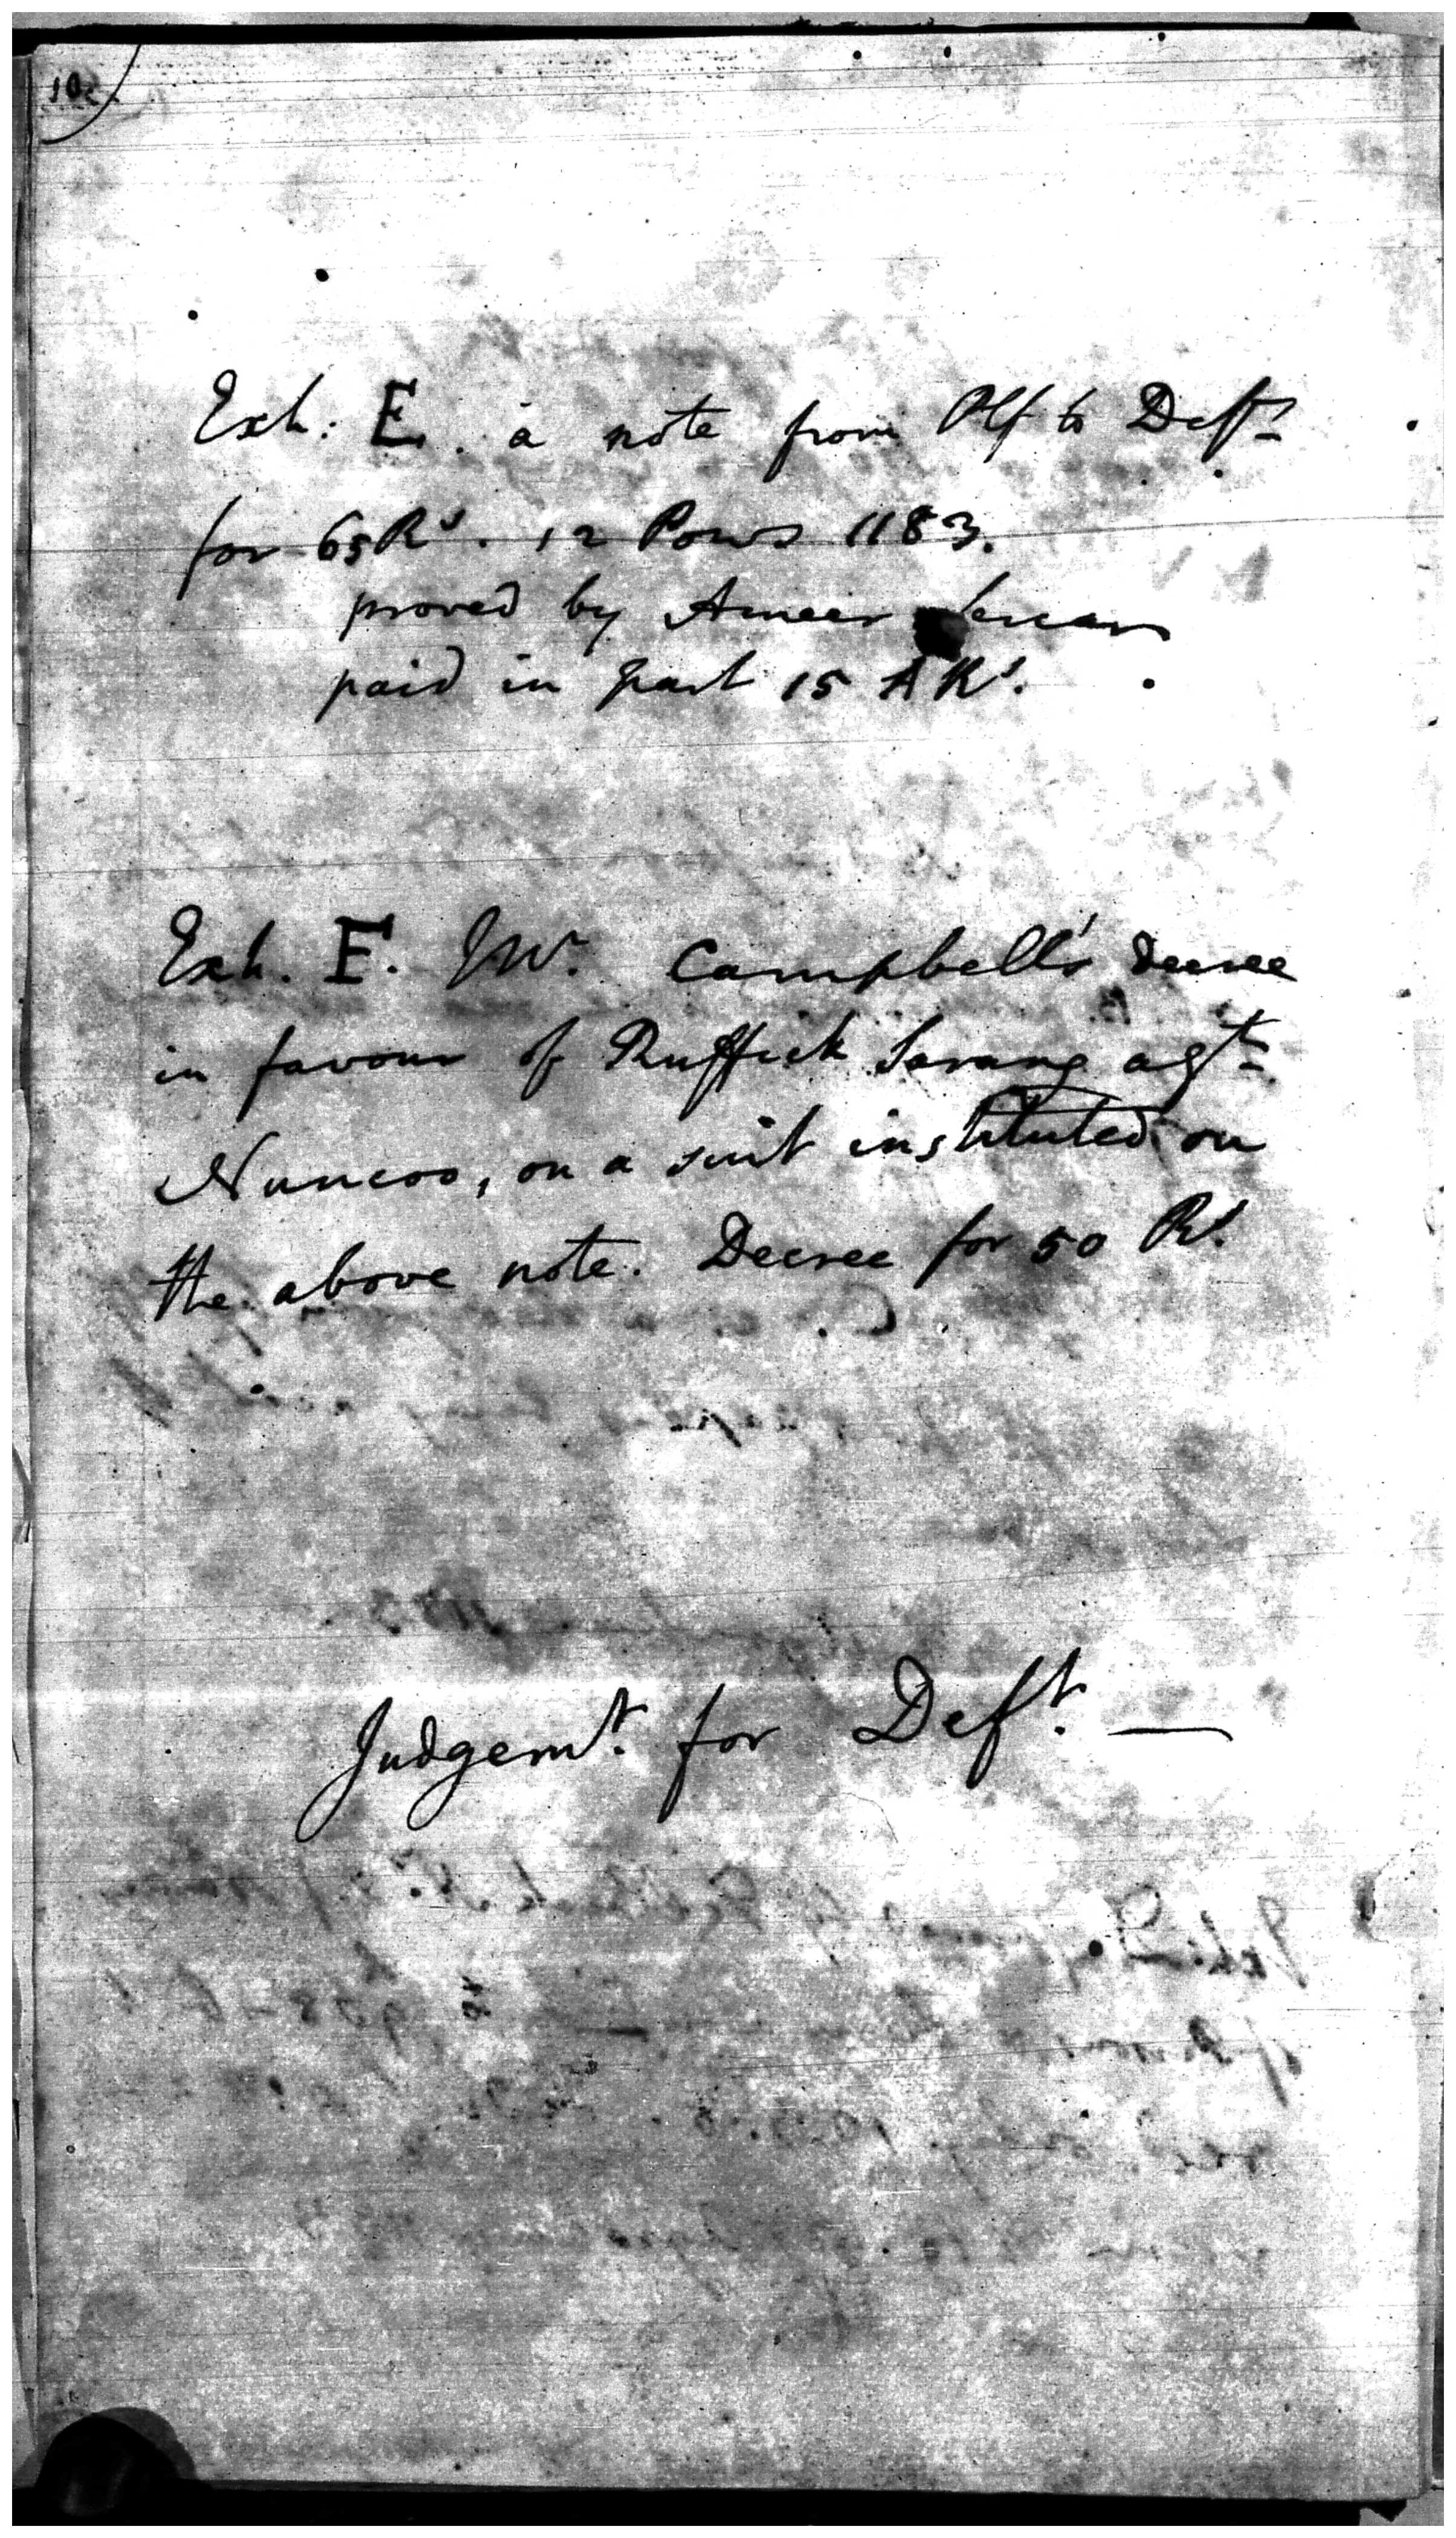 Exh: E. a note from Plf to Deft
for 65 Rs. 12 Pows 1183.
proved by Ameer
paid in part 15 A Rs.
Exh. F. Mr. Campbell's decree
in favour of Ruffick Sarang agt
Nuncoo, on a suit instituted on
the above note. Decree for 50 Rs.
Judgemt. for Deft. —